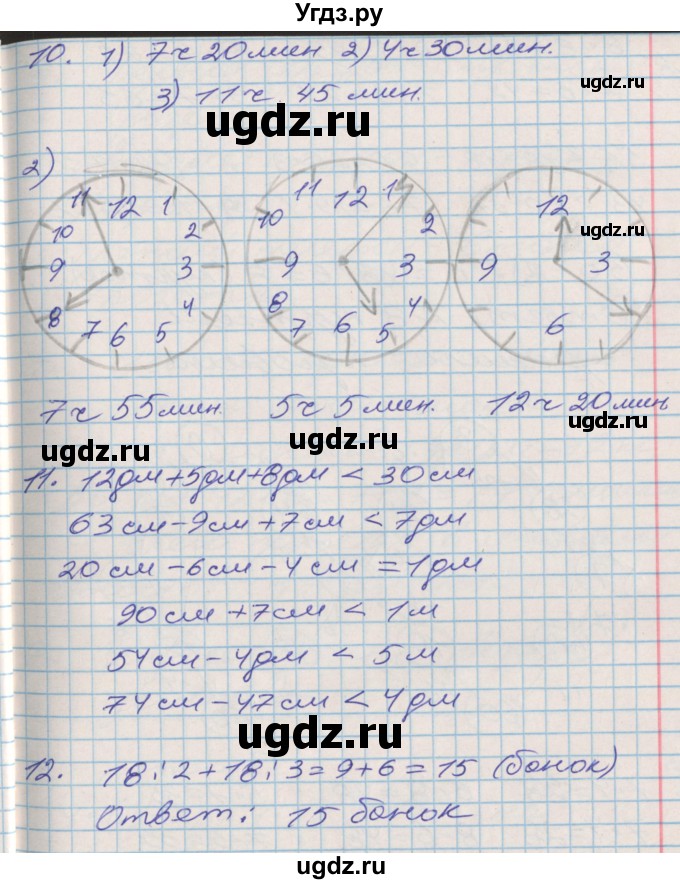 Угдз.ру
10. 1) 7ч 20мин 2) 4ч 30мин.
ugdz.ru
3) 11ч 45 мин.
ugdz.ru
2)
11 12 1
10 2
9 3
8 4
7 6 5
11 12 1
10 2
9 3
8 4
7 6 5
12
ugdz.ru
9 3
6
7ч 55мин. 5ч 5мин. 12ч 20мин
ugdz.ru ugdz.ru ugdz.ru
11. 12дм+5дм+8дм < 30см
63см-9см+7см < 7дм
20см-6см-4см = 1дм
90см+7см < 1м
54см-4дм < 5м
74см-47см < 4дм
ugdz.ru
12. 18:2+18:3=9+6=15 (банок)
Ответ: 15 банок
ugdz.ru
ugdz.ru